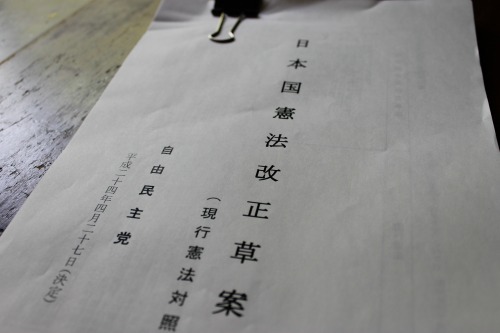 日本国憲法改正草案
(現行憲法対照
自由民主党
平成二十四年四月二十七日(決定)